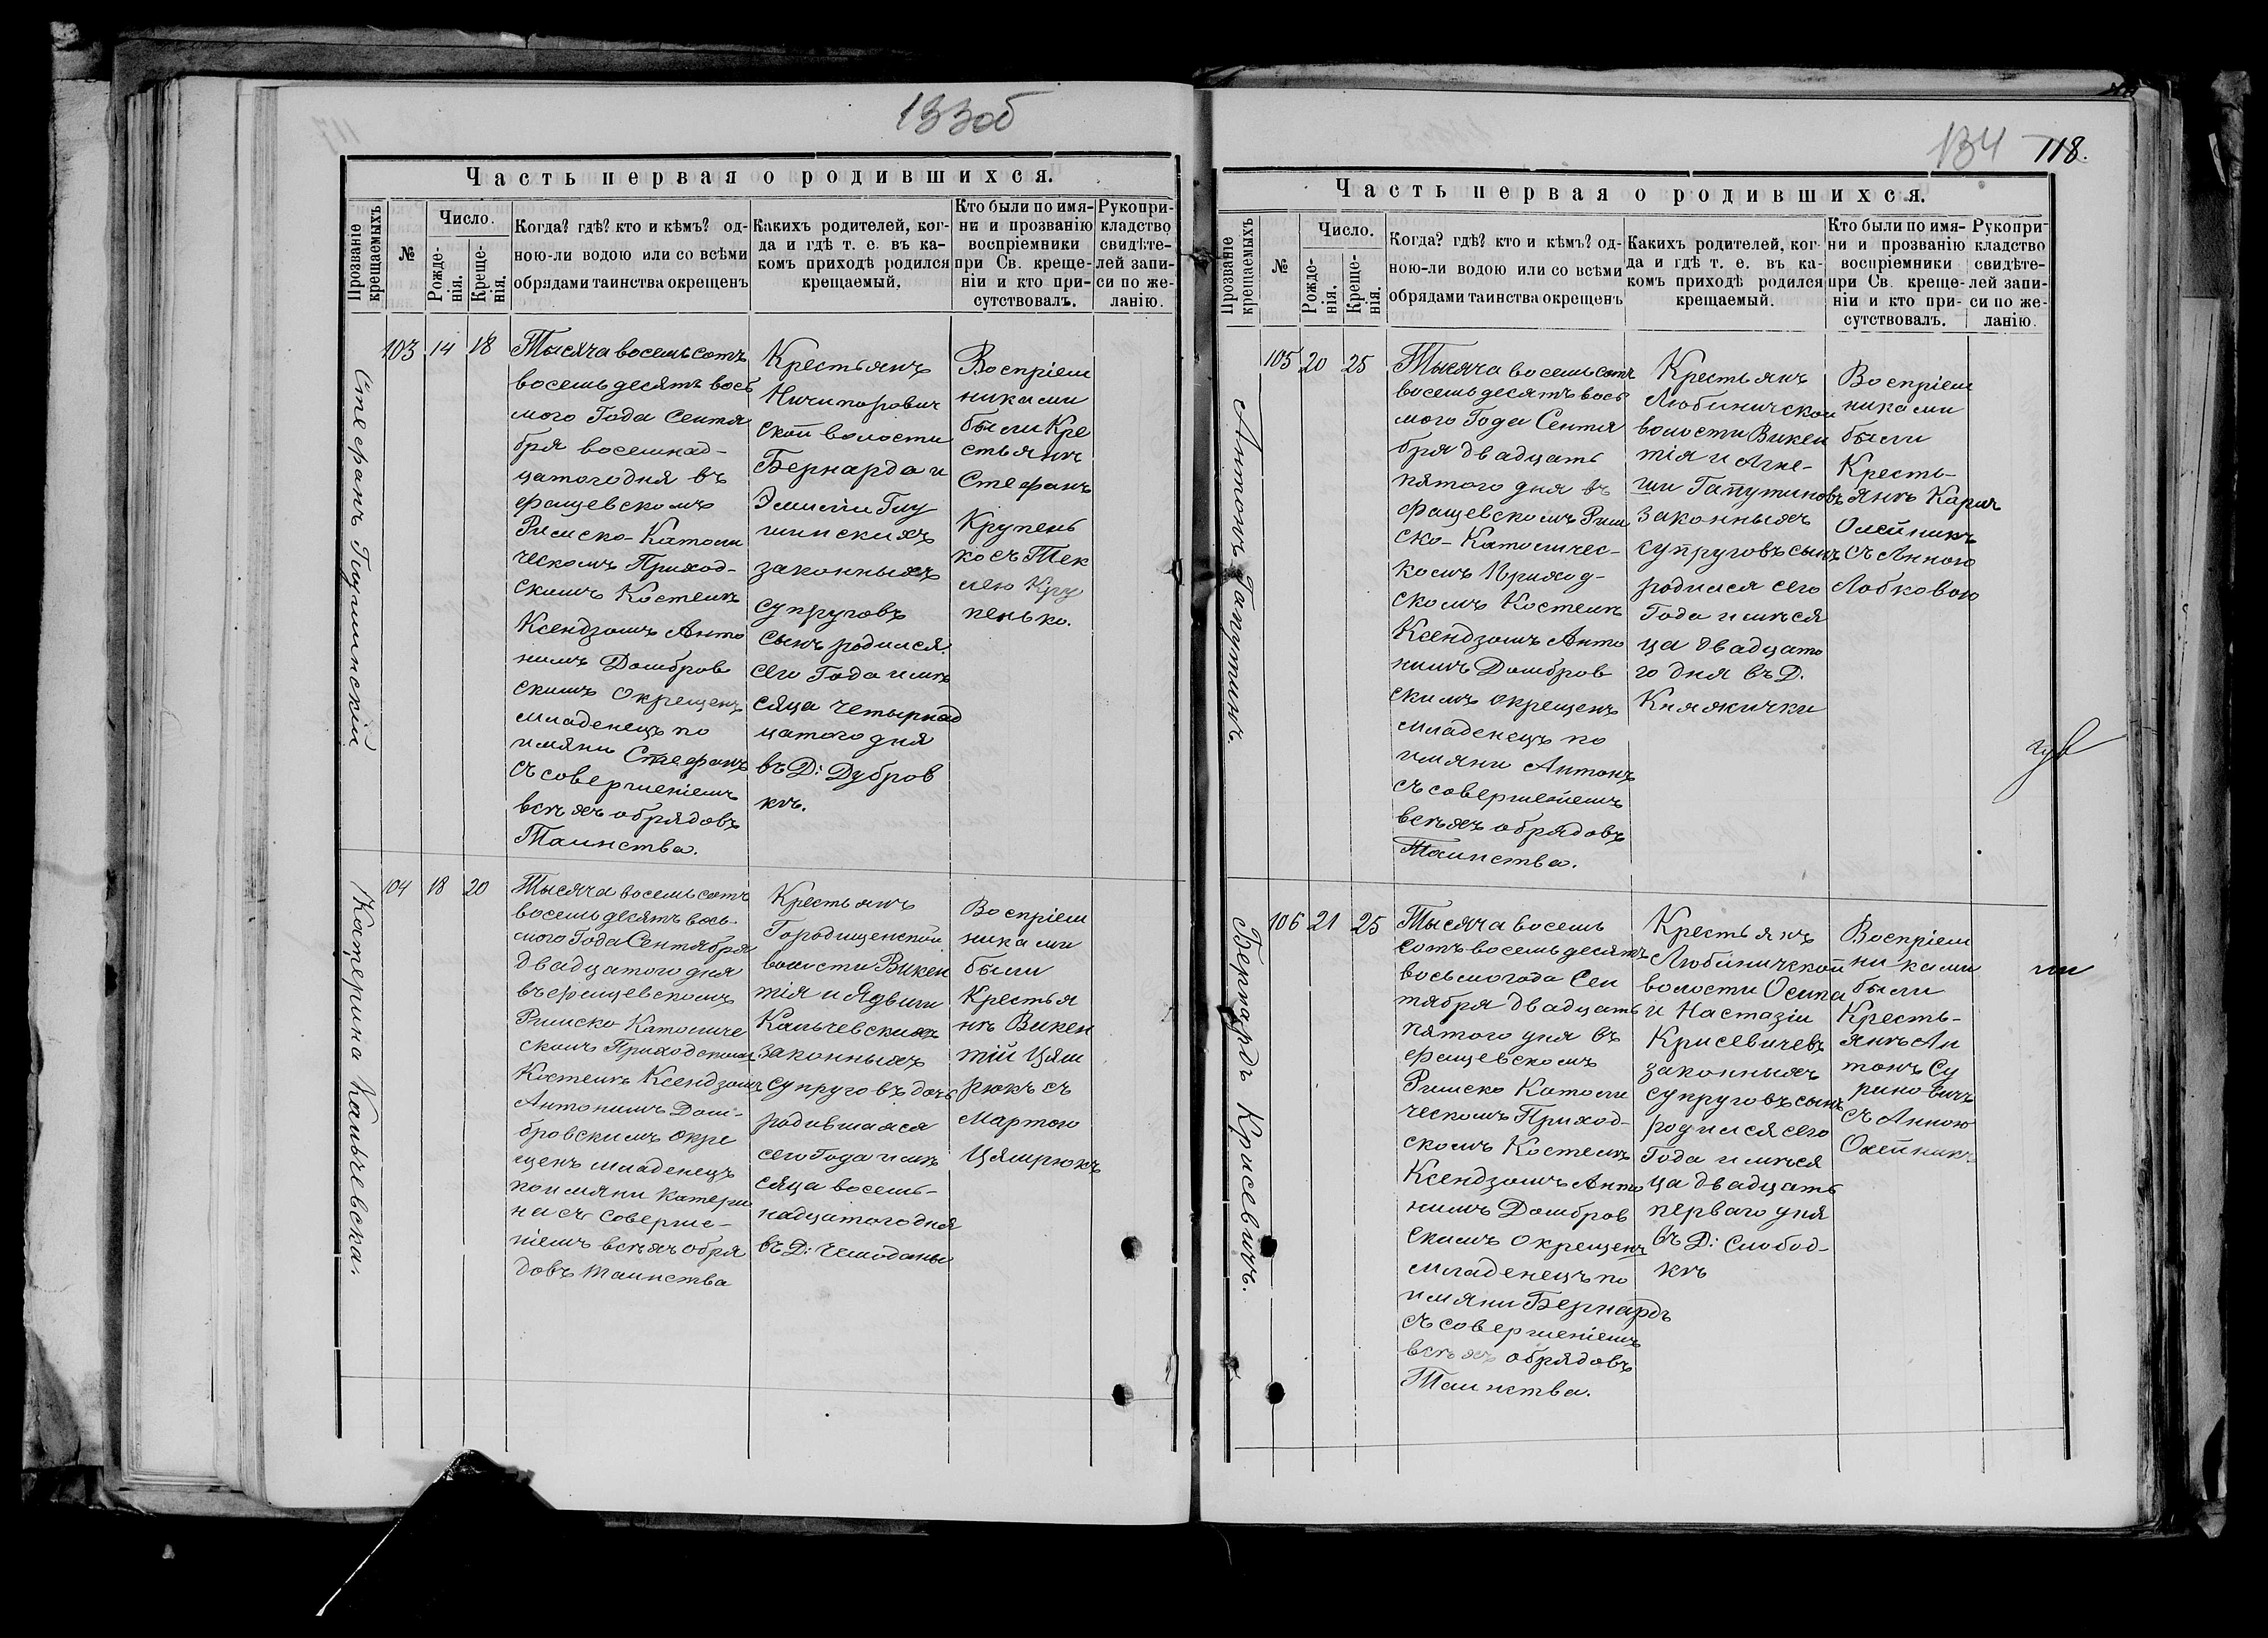 133об
Часть первая о родившихся.
Прозваніе крещаемыхъ
№
Число.
Рожде-
нія.
Креще-
нія.
Когда? гдѣ? кто и кѣмъ? од-
ною-ли водою или со всѣми
обрядами таинства окрещенъ
Какихъ родителей, ког-
да и гдѣ т. е. въ ка-
комъ приходѣ родился
крещаемый.
Кто были по имя-
ни и прозванію
воспріемники
при Св. креще-
ніи и кто при-
сутствовалъ.
Рукопри-
кладство
свидѣте-
лей запи-
си по же-
ланію.
Стефанъ Глушинскій
103 14 18
Тысяча восемьсотъ
восемьдесятъ вось
мого Года Сентя
бря восемнад-
цатого дня въ
Фащевскомъ
Римско-Католи
ческомъ Приход-
скомъ Костелѣ
Ксендзомъ Анто
нимъ Домбров
скимъ Окрещенъ
младенецъ по
имяни Стефанъ
съ совершеніемъ
всѣхъ обрядовъ
Таинства.
Крестьянъ
Ничипорович
ской волости
Бернарда и
Эмиліи Глу
шинскихъ
законныхъ
супруговъ
сынъ родился
сего Года и мѣ
сяца четырнад
цатого дня
въ Д: Дубров
кѣ.
Воспріем
никами
были Кре
стьянѣ
Стефанъ
Крупень
ко съ Тек
лею Кру
пенько.
Катерина Кальчевска.
104 18 20
Тысяча восемьсотъ
восемьдесятъ вось-
мого Года Сентября
двадцатого дня
въ Фащевскомъ
Римско Католиче
скомъ Приходскомъ
Костелѣ Ксендзомъ
Антонимъ Дом-
бровскимъ окре
щенъ младенецъ
по имяни Катери
на съ соверше-
ніемъ всѣхъ обря
довъ таинства
Крестьянъ
Городищенской
волости Викен
тія и Ядвиги
Кальчевскихъ
законныхъ
супруговъ дочь
родившаяся
сего Года и мѣ
сяца восемь-
надцатого дня
въ Д: Чемоданы
Воспріем
никами
были
Крестья
нѣ Викен
тій Цям
рюкъ съ
Мартою
Цямрюкъ
134 118.
Часть первая о родившихся.
Прозваніе крещаемыхъ
№
Число.
Рожде-
нія.
Креще-
нія.
Когда? гдѣ? кто и кѣмъ? од-
ною-ли водою или со всѣми
обрядами таинства окрещенъ
Какихъ родителей, ког-
да и гдѣ т. е. въ ка-
комъ приходѣ родился
крещаемый.
Кто были по имя-
ни и прозванію
воспріемники
при Св. креще-
ніи и кто при-
сутствовалъ.
Рукопри-
кладство
свидѣте-
лей запи-
си по же-
ланію.
Антонъ Гапутинъ.
105 20 25
Тысяча восемьсотъ
восемьдесятъ вось
мого Года Сентя
бря двадцать
пятого дня въ
Фащевскомъ Рим
ско-Католичес-
комъ Приход-
скомъ Костелѣ
Ксендзомъ Анто
нимъ Домбров
скимъ окрещенъ
младенецъ по
имяни Антонъ
съ совершеніемъ
всѣхъ обрядовъ
Таинства.
Крестьянъ
Любиничской
волости Викен
тія и Агне-
ши Гапутиновъ
законныхъ
супруговъ сынъ
родился сего
Года и мѣся
ца двадцато
го дня въ Д.
Княжички
Воспріем
никами
были
Кресть-
янѣ Карлъ
Олейникъ
съ Анною
Лобковою
Бернардъ Крисевичъ.
106 21 25
Тысяча восемь
сотъ восемьдесятъ
восьмого года Сен
тября двадцать
пятого дня въ
Фащевскомъ
Римско Католи
ческомъ Приход-
скомъ Костелѣ
Ксендзомъ Анто
нимъ Домбров
скимъ окрещенъ
младенецъ по
имяни Бернардъ
съ совершеніемъ
всѣхъ обрядовъ
Таинства.
Крестьянъ
Любиничской
волости Осипа
и Настазіи
Крисевичевъ
законныхъ
супруговъ сынъ
родился сего
Года и мѣся
ца двадцать
перваго дня
въ Д: Слобод-
кѣ
Воспріем
никами
были
Кресть-
янѣ Ан
тонъ Су
риновичъ
съ Анною
Олейникъ